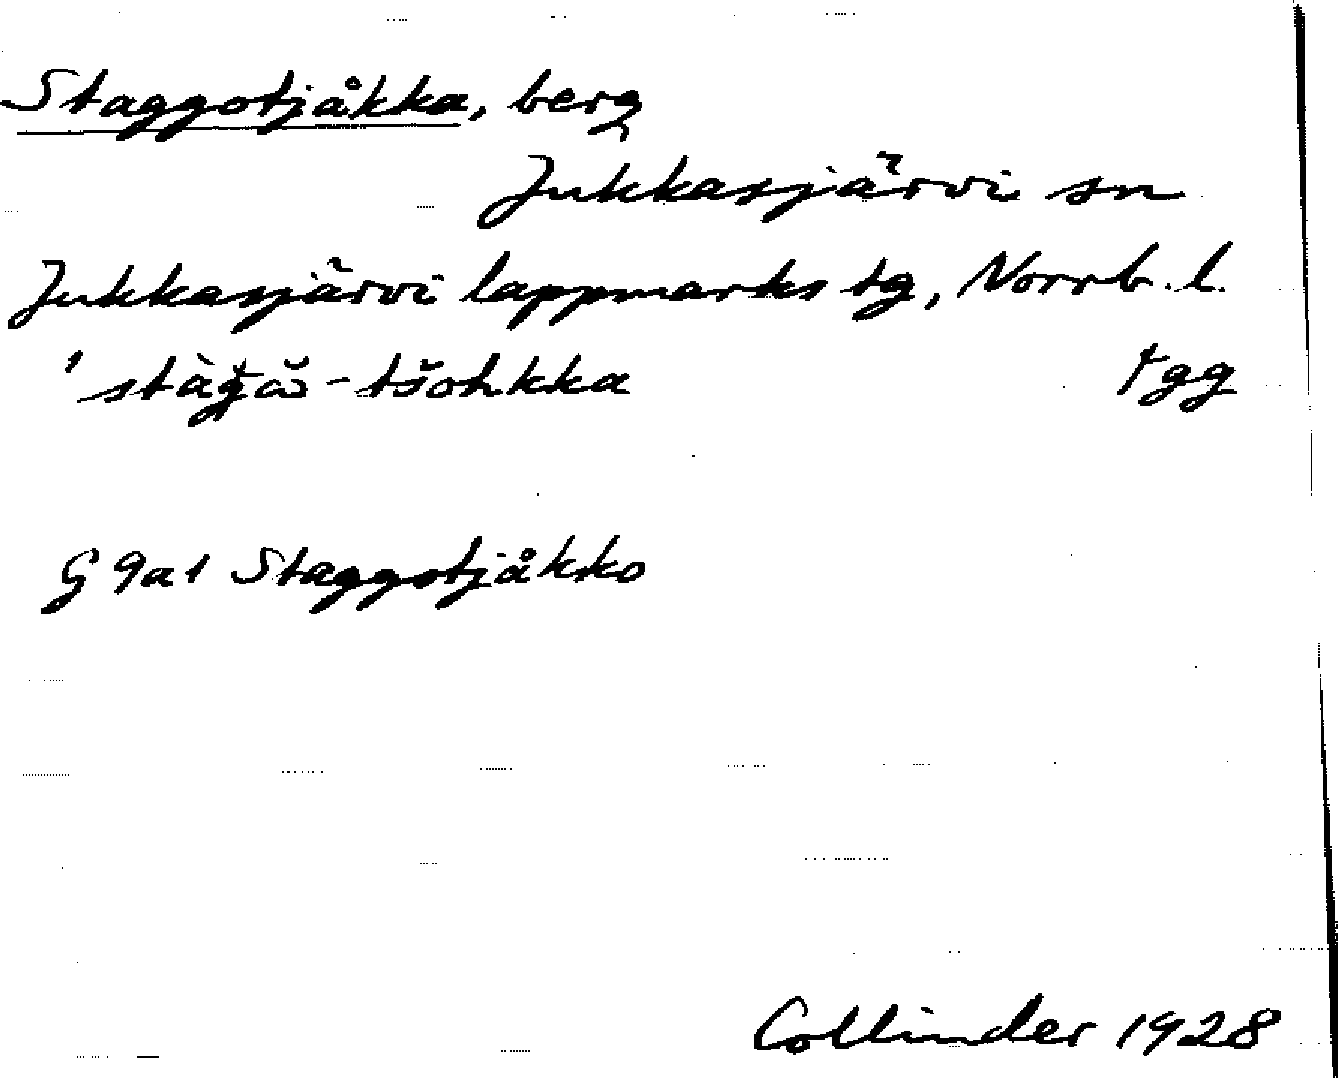 Staggotjåkka, berg
Jukkasjärvi sn
Jukkasjärvi lappmarks tg, Norrb. l.
'stàǥă-tšohkka
G 9a1 Staggotjåkko
Collinder 1928